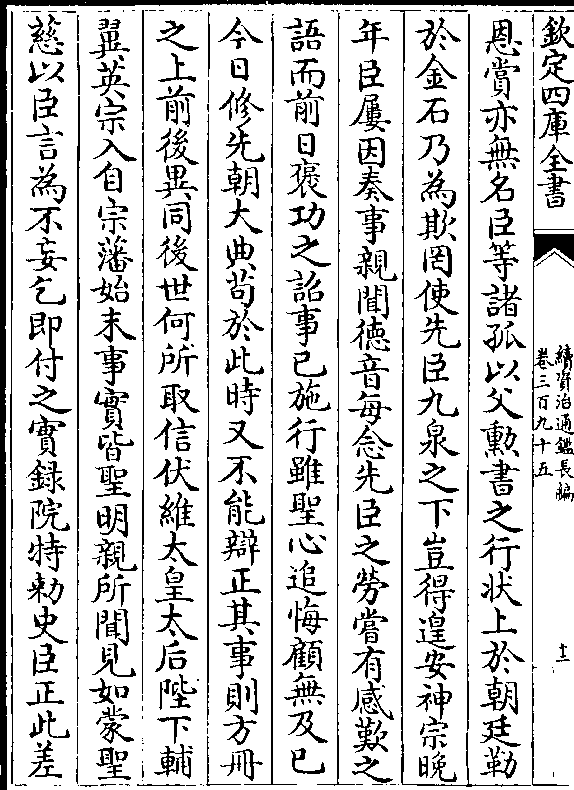 欽定四庫全書
續資治通鑑長編
卷三百九十五
十三
恩賞亦無名臣等諸孤以父勲書之行狀上於朝廷勒
於金石乃為欺罔使先臣九泉之下豈得遑安神宗晚
年臣屢因奏事親聞徳音每念先臣之勞嘗有感歎之
語而前日褒功之詔事已施行雖聖心追悔顧無及已
今日修先朝大典苟於此時又不能辯正其事則方冊
之上前後異同後世何所取信伏維太皇太后陛下輔
翼英宗入自宗藩始末事實皆聖明親所聞見如蒙聖
慈以臣言為不妄乞即付之實録院特勅史臣正此差